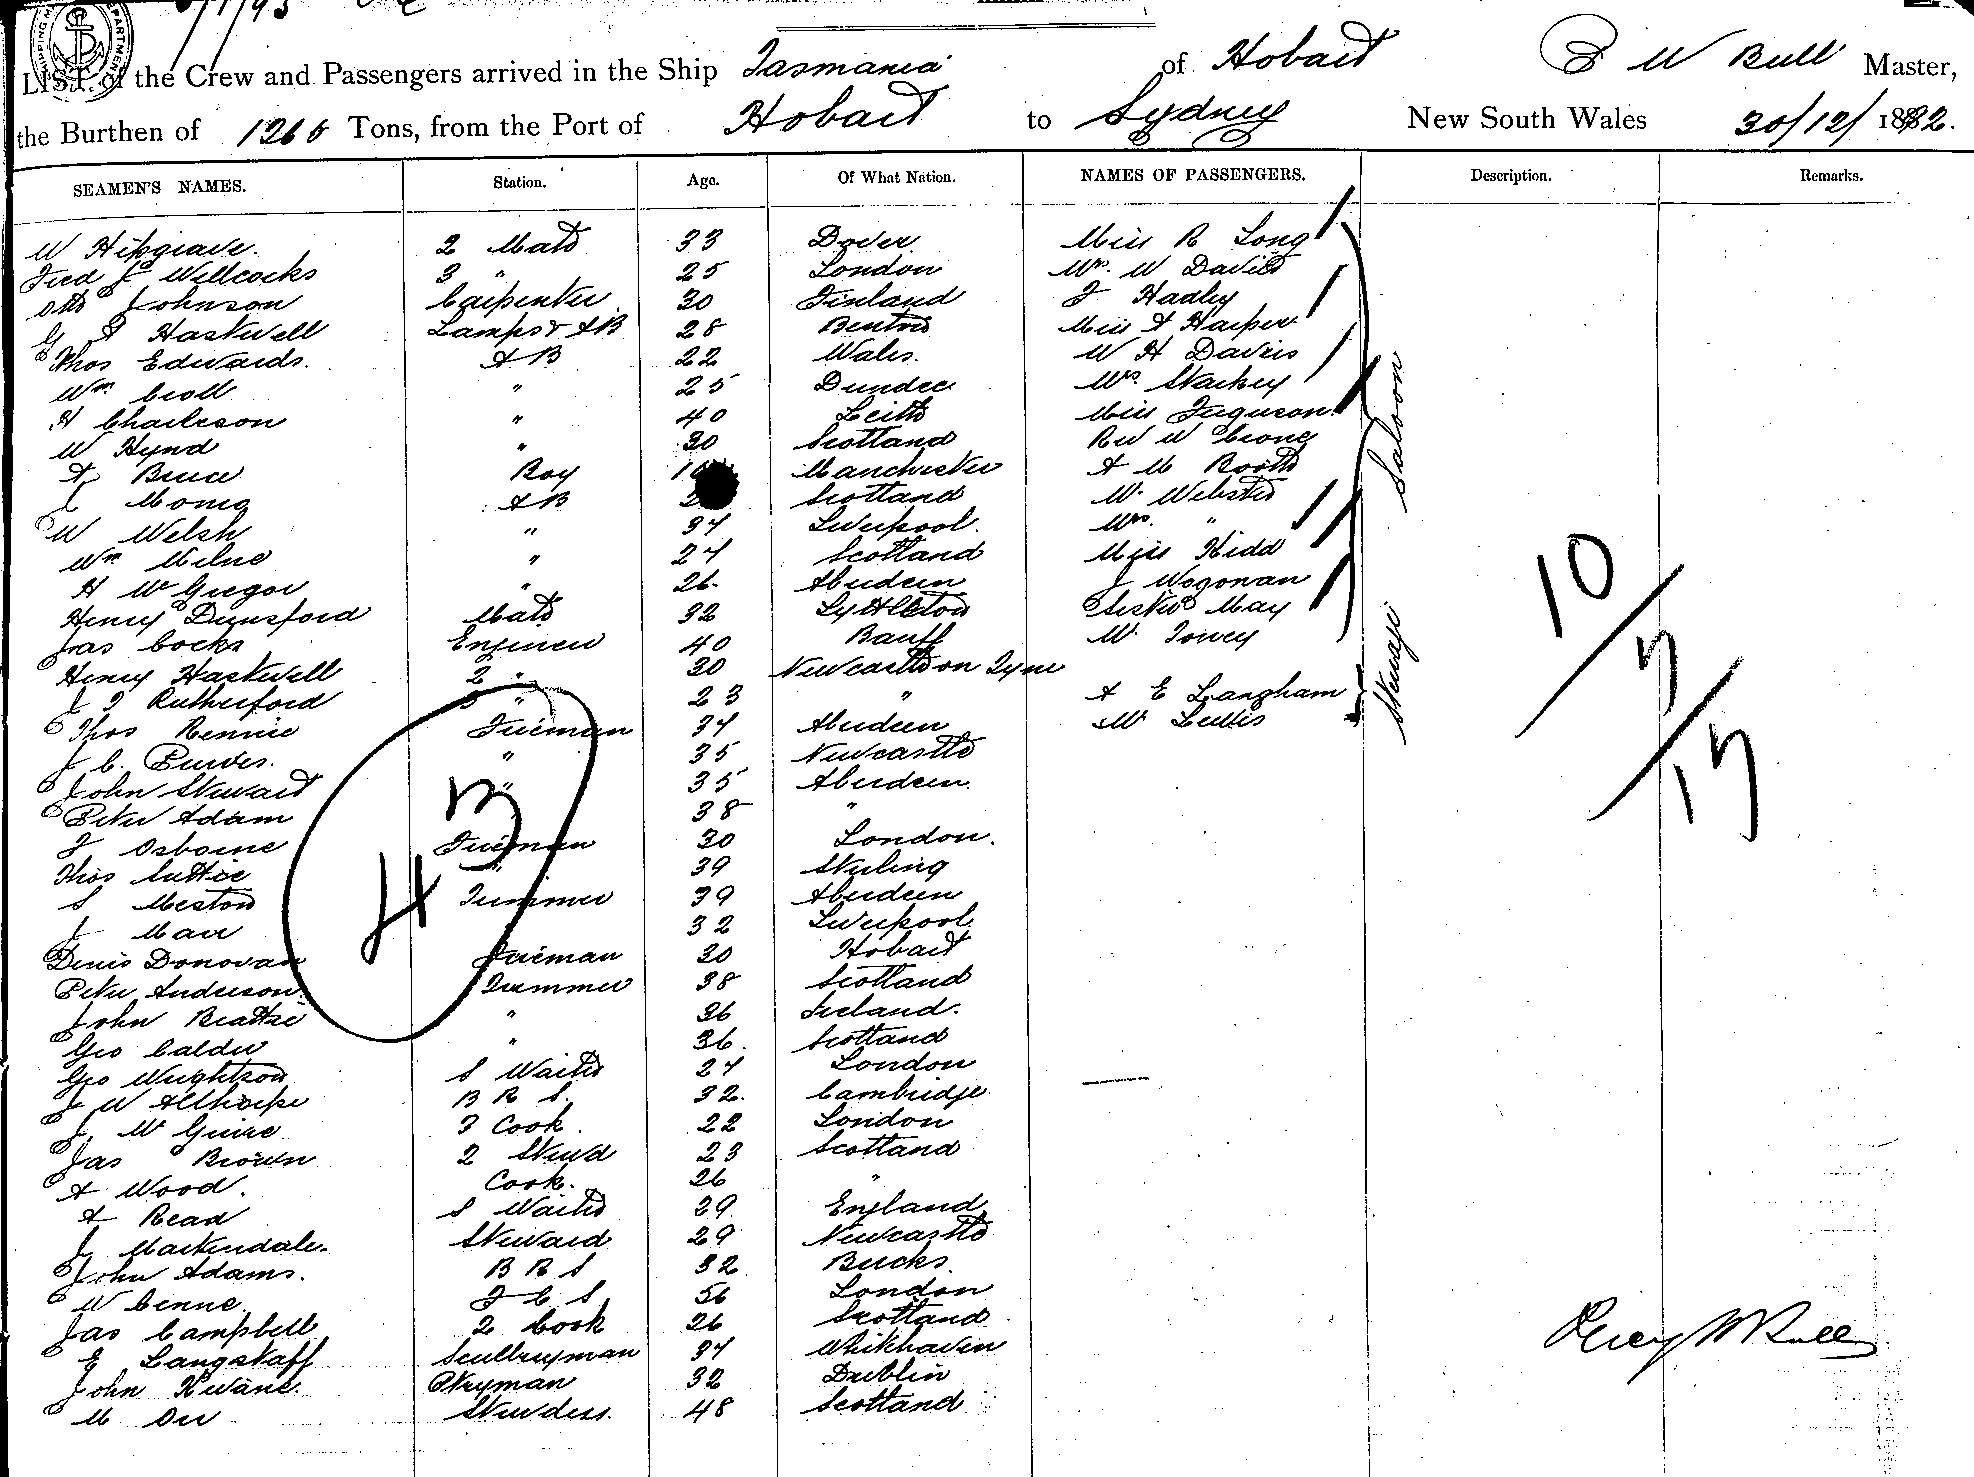 LIST of the Crew and Passengers arrived in the Ship Tasmania of Hobart W Bull Master,
the Burthen of Tons, from the Port of Hobart to Sydney New South Wales 30/12/1892.
SEAMEN'S NAMES. Station. Age. Of What Nation. NAMES OF PASSENGERS. Description. Remarks.
W Hipgrave. 2 Mate 33 Dover Miss R Long
Fred J Willcocks 3 " 25 London W Davies
Otto Johnson Carpenter 30 Finland Hadley
Haskwell Lamps & AB 28 Miss A Harper
Thos Edwards. AB 22 Wales. W H Davies
Wm Croll " 25 Dundee Starkey
H Charleson " 40 Leith Miss Ferguson
W Hynd " 30 Scotland Rev W
A Bruce Boy Manchester A M Booth
J AB Scotland W. Webster
W Welsh " 34 Liverpool. Mrs. "
Wm Milne " 24 Scotland Miss Kidd
H McGregor " 26 Aberdeen J Wogonan
Henry Dunsford Mate 32 Lyttleton Sister May
Jas Cocks Engineer 40 Banff W.
Henry Haskwell 2 " 30 Newcastle on Tyne
J T Rutherford 3 " 23 " A E Langham
Thos Rennie Fireman 34 Aberdeen W
J C. Purves. " 35 Newcastle
John Stewart " 35 Aberdeen.
Peter Adam 38 "
J Osborne Fireman 30 London.
Thos Suttie " 39 Stirling
S Meston Trimmer 39 Aberdeen
J Marr 32 Liverpool.
Denis Donovan Fireman 30 Hobart
Peter Anderson. Trimmer 38 Scotland
John Beattie " 36 Ireland.
Geo Calder " 36. Scotland
Geo Weightson S Waiter 24 London
J W Allthorpe B R S. 32. Cambridge
J. McGuire 3 Cook. 22 London
Jas Brown 2 Stewd 23 Scotland
A Wood. Cook. 26 "
A Read S Waiter 29 England
J Markendale. Steward 29 Newcastle
John Adams. B R S 32 Bucks.
W F C S. 56 London
Jas Campbell 2 Cook 26 Scotland
E Langstaff Scullryman 34 Whitehaven
John Kwane. Ptryman 32 Dublin
M Orr Stewdess. 48 Scotland
Saloon
Steerage
43
10
7
17
Percy W Bull